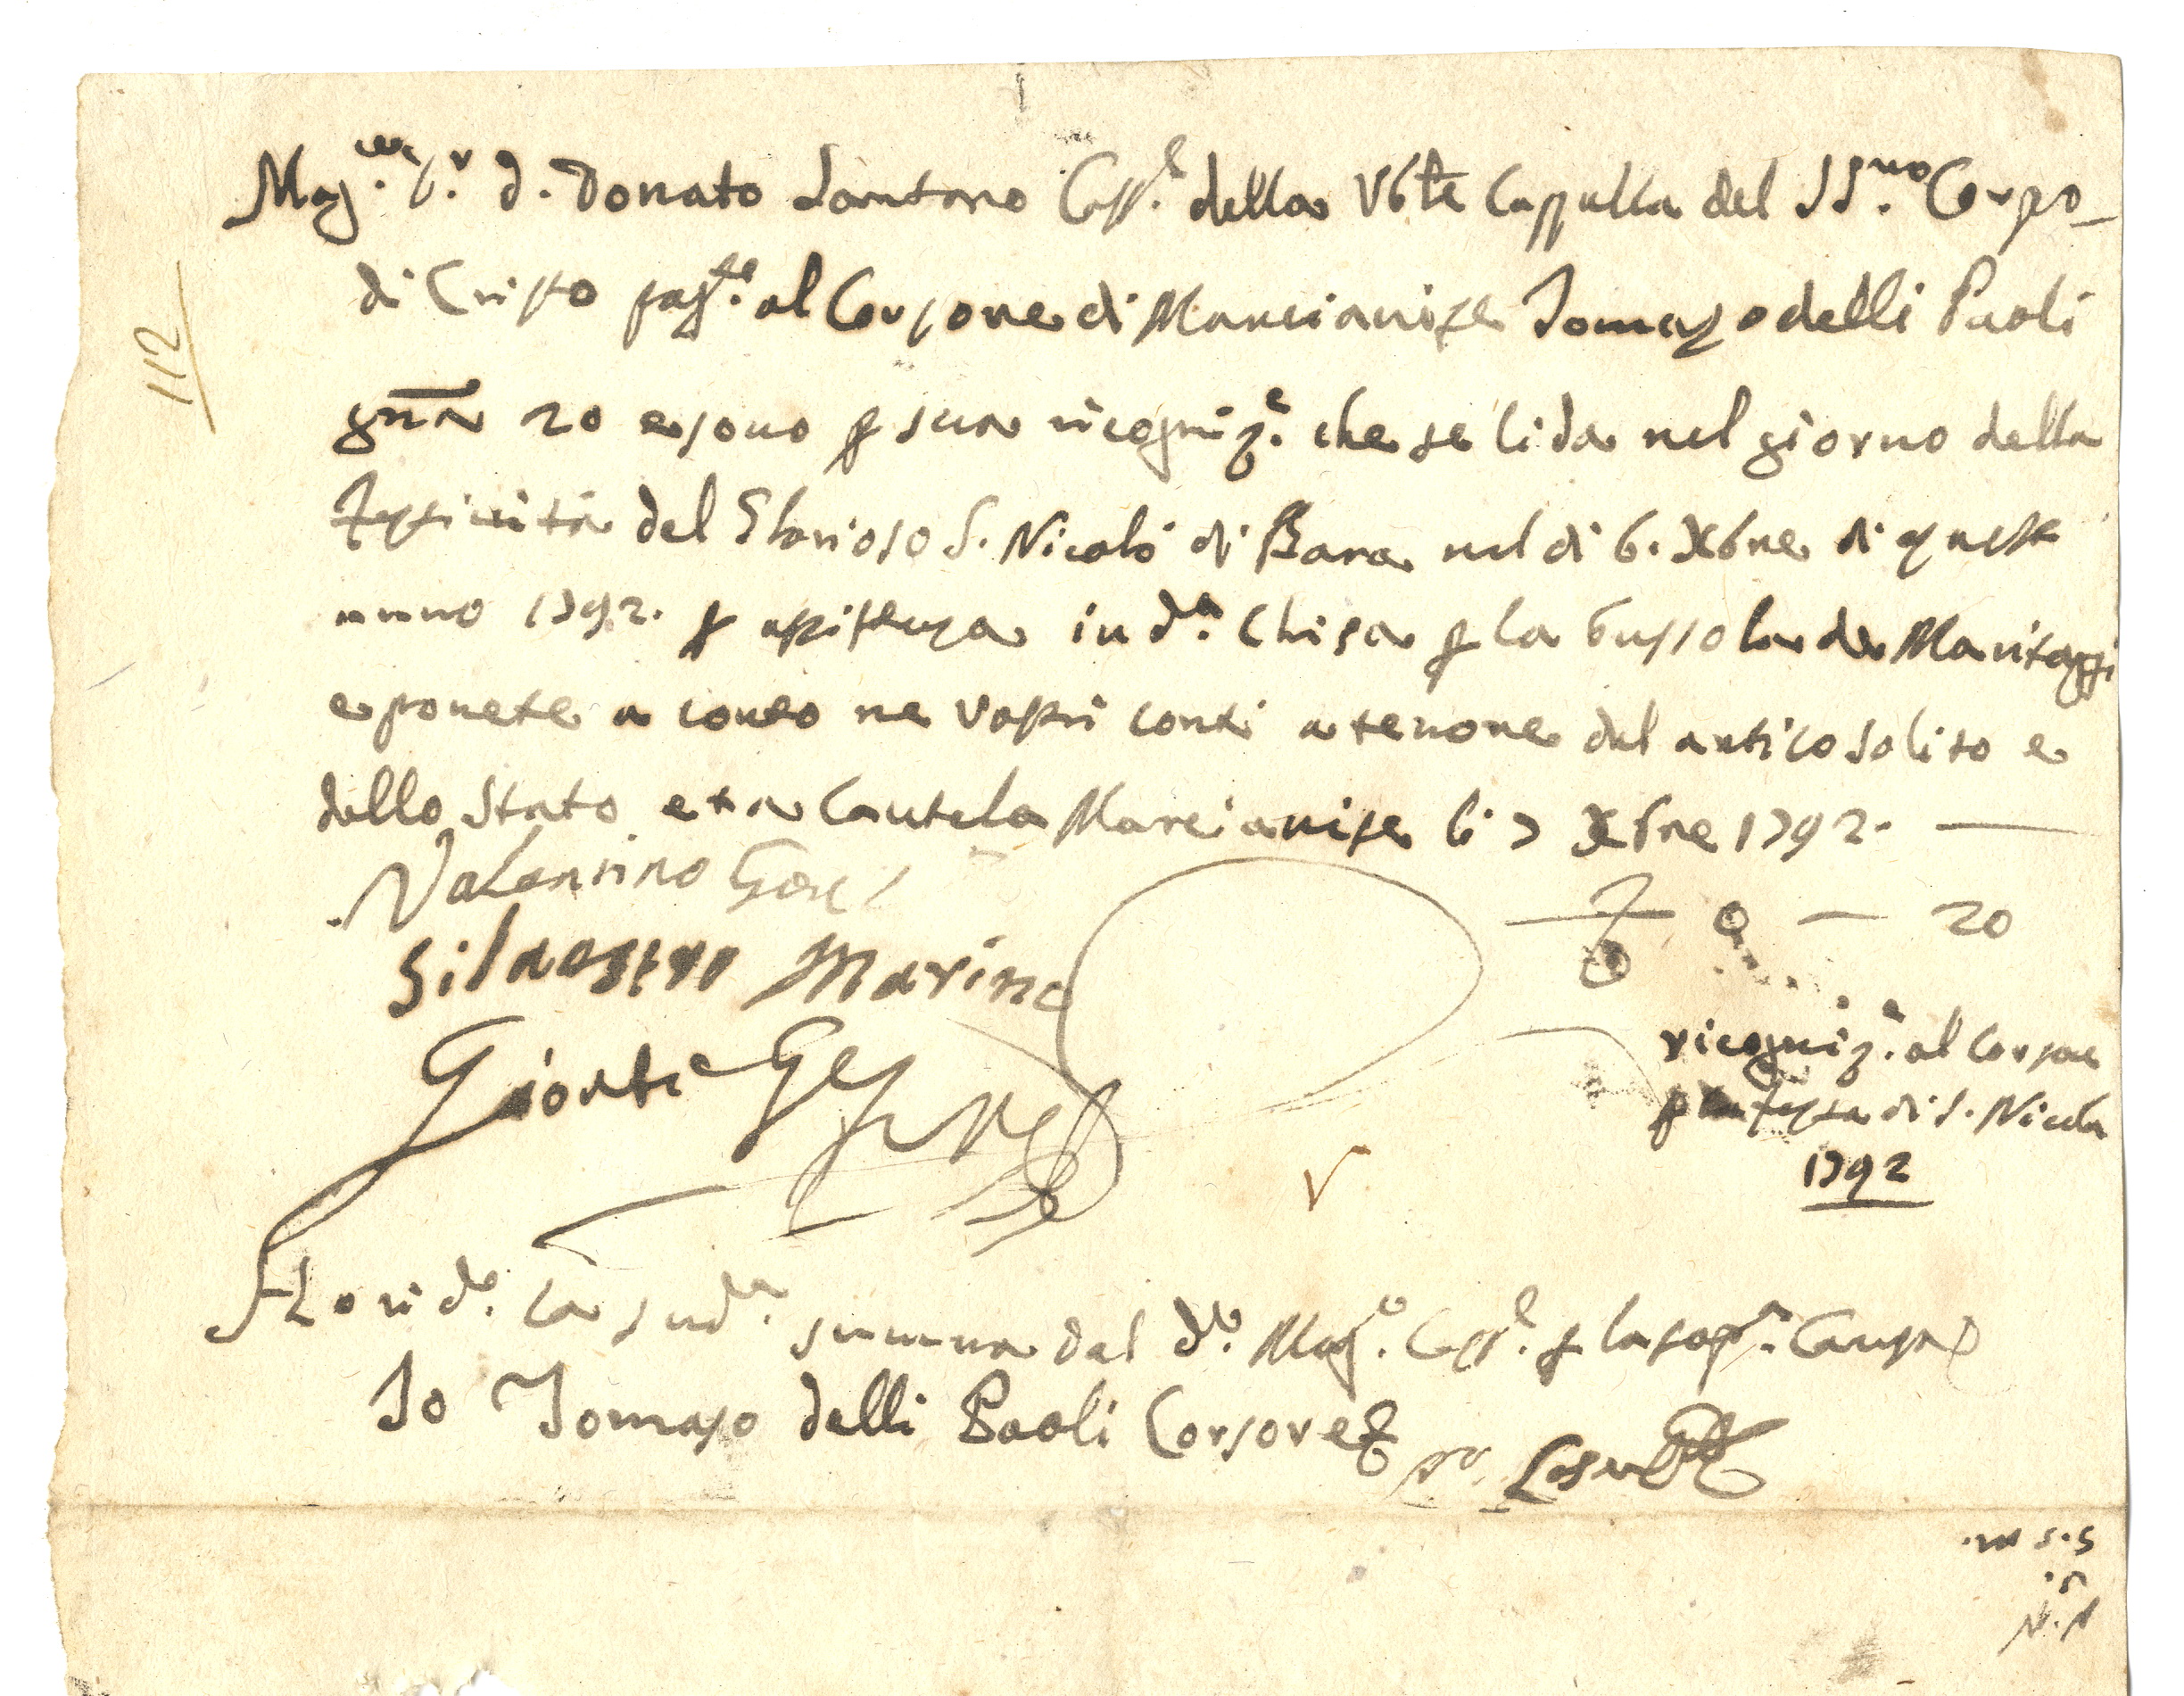 112
Mag.co Sr. D. Donato Santoro Cass.e della V6le Cappella del SS.mo Corpo
di Cristo pag.te al Corsore di Marcianise Tomaso delli Paoli
grana 20 e sono p sua ricogniz.e che se li da nel giorno della
Festività del Glorioso S. Nicolò di Bara nel di 6. X6re di questo
anno 1792. p assistenza in d.a Chisa p la bussola de Maritaggi
e ponete a conto ne vostri conti a tenore del antico solito e
dello Stato et a Cautela Marcianise li 7 X6re 1792.
Valentino
Silvestro Marino
20
ricogniz.e al Corsore
p la festa di S. Nicola
1792
Ho ric.to la sud.a summa dal d.o Mag.co Cass.e p la sop.a Causa
Io Tomaso delli Paoli Corsore